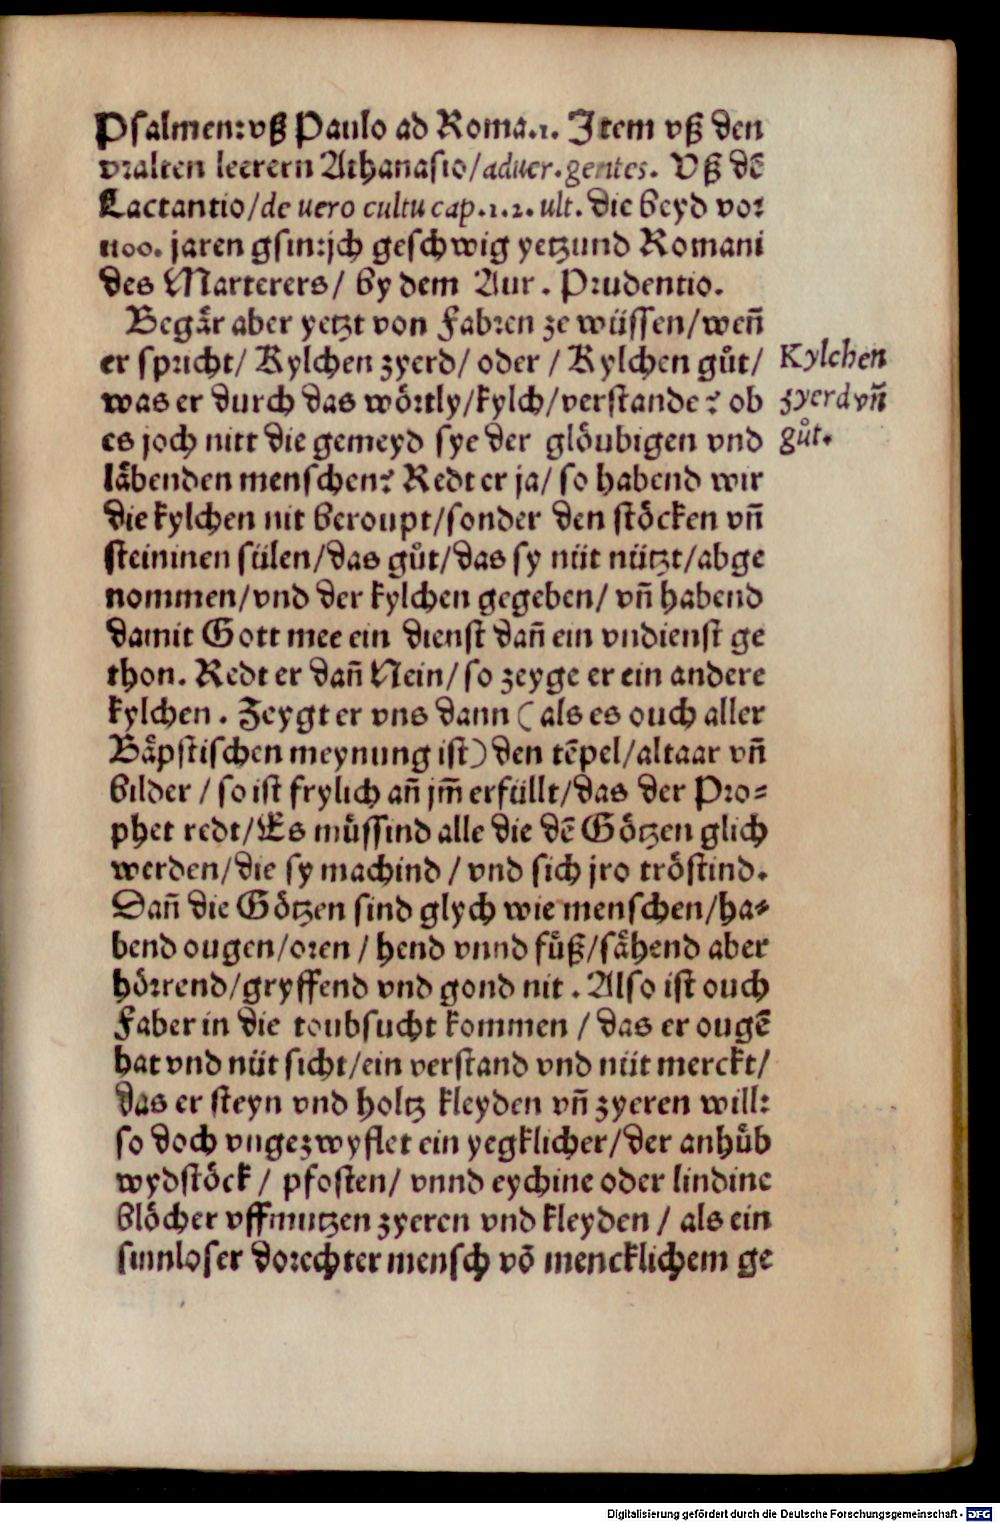 Psalmen: vß Paulo ad Roma.1. Item vß den
vralten leerern Athanasio/aduer.gentes. Vß dē
Lactantio/de uero cultu cap.1.2. ult. die beyd vor
1100. jaren gsin: jch geschwig yetzund Romani
des Marterers/ by dem Aur. Prudentio.
Begår aber yetzt von Fabren ze wüssen/weñ
er spricht/ Kylchen zyerd/ oder / Kylchen gůt/
was er durch das wörtly/kylch/verstande? ob
es joch nitt die gemeyd sye der glöubigen vnd
låbenden menschen? Redt er ja/ so habend wir
die kylchen nit beroupt/sonder den stöcken vñ
steininen sülen/das gůt/das sy nüt nützt/abge
nommen/vnd der kylchen gegeben/ vñ habend
damit Gott mee ein dienst dañ ein vndienst ge
thon. Redt er dañ Nein/ so zeyge er ein andere
kylchen. Zeygt er vns dann (als es ouch aller
Båpstischen meynung ist) den tēpel/altaar vñ
bilder / so ist frylich añ jm̃ erfüllt/das der Pro-
phet redt/Es müssind alle die dē Götzen glich
werden/die sy machind / vnd sich jro tröstind.
Dañ die Götzen sind glych wie menschen/ha-
bend ougen/oren / hend vnnd füß/såhend aber
hörrend/gryffend vnd gond nit. Also ist ouch
Faber in die toubsucht kommen / das er ougē
hat vnd nüt sicht/ein verstand vnd nüt merckt/
das er steyn vnd holtz kleyden vñ zyeren will:
so doch vngezwyflet ein yegklicher/der anhůb
wydstöck / pfosten/ vnnd eychine oder lindine
blöcher vffmutzen zyeren vnd kleyden / als ein
sinnloser dorechter mensch vō mencklichem ge
Kylchen
zyerd vñ
gůt.
Digitalisierung gefördert durch die Deutsche Forschungsgemeinschaft - DFG